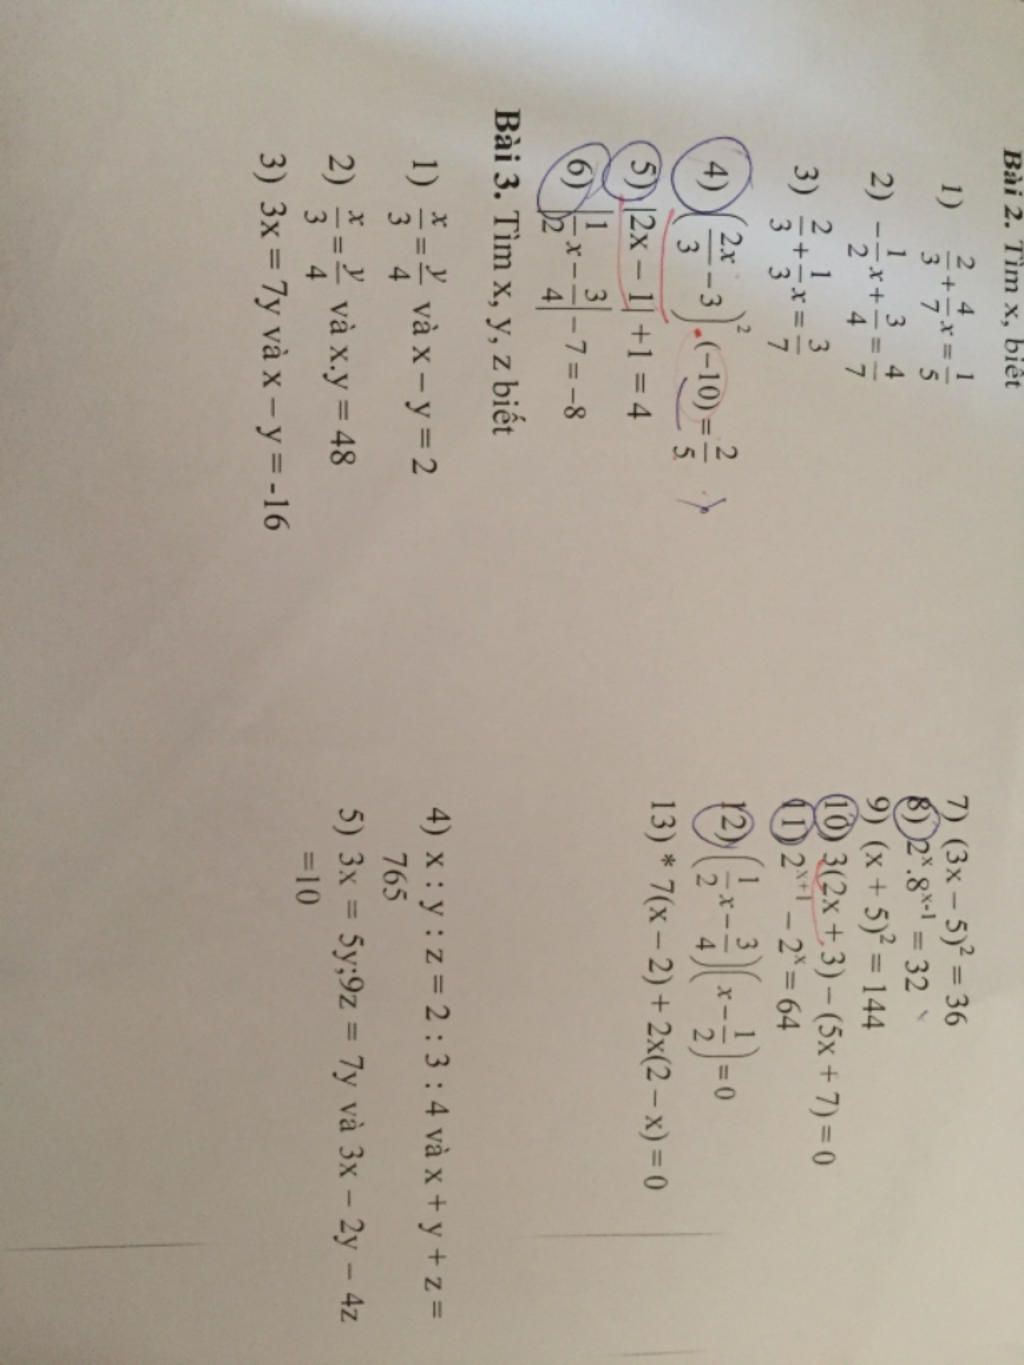 Bài 2. Tìm x, biết
1) 2/3 + 4/7 x = 1/5
2) -1/2 x + 3/4 = 4/7
3) 2/3 + 1/3 x = 3/7
4) (2x/3 - 3)² . (-10) = 2/5
5) |2x - 1| + 1 = 4
6) |1/2 x - 3/4| - 7 = -8
7) (3x - 5)² = 36
8) 2ˣ.8ˣ⁻¹ = 32
9) (x + 5)² = 144
10) 3(2x + 3) - (5x + 7) = 0
11) 2ˣ⁺¹ - 2ˣ = 64
12) (1/2 x - 3/4)(x - 1/2) = 0
13) * 7(x - 2) + 2x(2 - x) = 0
Bài 3. Tìm x, y, z biết
1) x/3 = y/4 và x - y = 2
2) x/3 = y/4 và x.y = 48
3) 3x = 7y và x - y = -16
4) x : y : z = 2 : 3 : 4 và x + y + z =
765
5) 3x = 5y;9z = 7y và 3x - 2y - 4z
=10